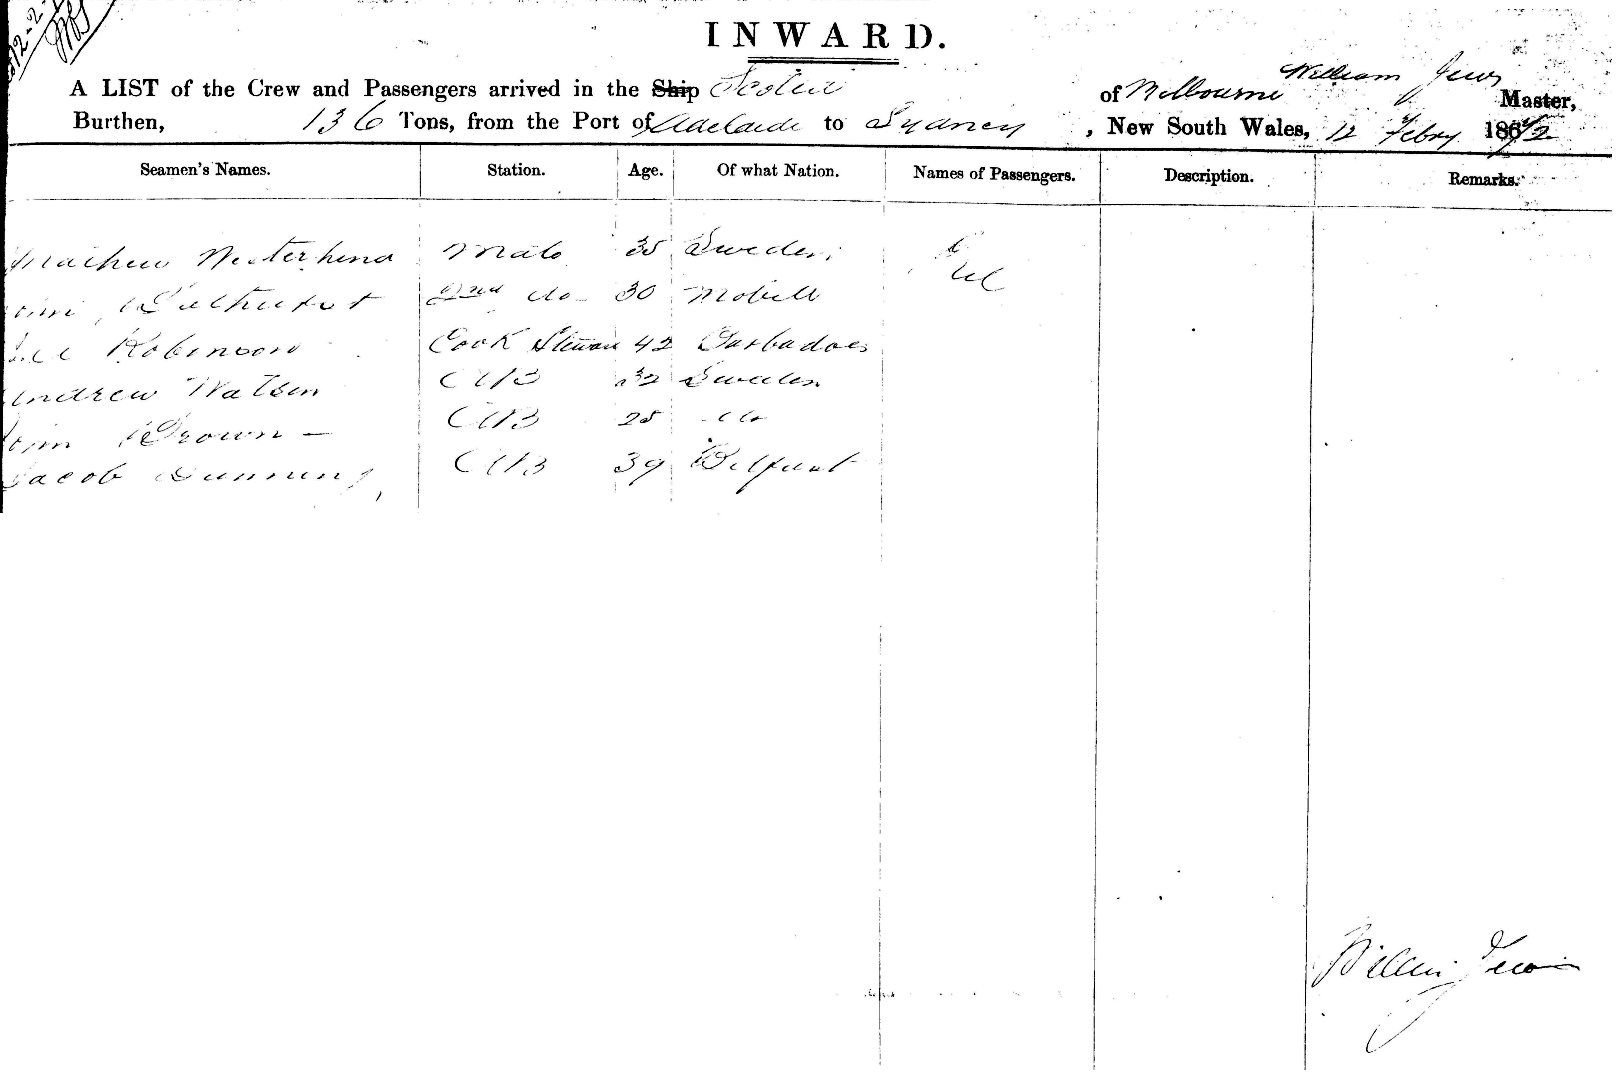 12-2-
INWARD.
A LIST of the Crew and Passengers arrived in the Ship of Melbourne William Master,
Burthen, 136 Tons, from the Port of Adelaide to Sydney, New South Wales, 12 Febry 1872
Seamen's Names. Station. Age. Of what Nation. Names of Passengers. Description. Remarks.
Mathew Mate 35 Sweden
2nd do 30 Mobill
Robinson Cook Steward 42 Barbadoes
Andrew Watson AB 32 Sweden
Brown AB 25 do
Jacob AB 39 Belfast